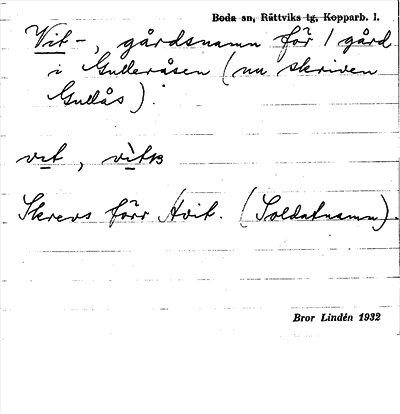 Boda sn, Rättviks tg, Kopparb. l.
Vit-, gårdsnamn för 1 gård
i Gulleråsen (nu skriven
Gullås).
vit, vìtn
Skrevs förr Hvit. (Soldatnamn).
Bror Lindén 1932